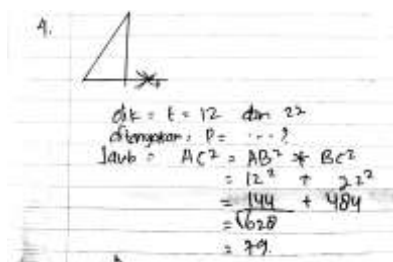 4.
dik = t = 12 dan 22
ditanyakan : P = .... ?
Jawb = AC² = AB² + BC²
= 12² + 22²
= 144 + 484
= √628
= 79.